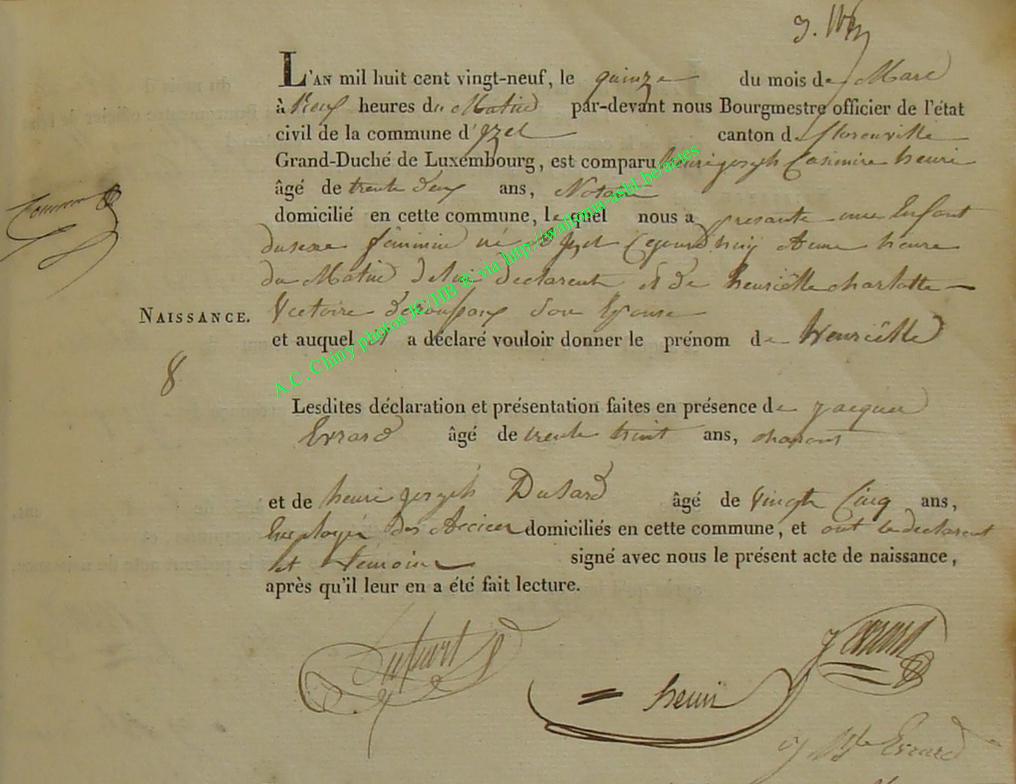 L'AN mil huit cent vingt-neuf, le quinze du mois de Mare
à Neuf heures du Matin par-devant nous Bourgmestre officier de l'état
civil de la commune d'Izel canton de florenville
Grand-Duché de Luxembourg, est comparu henri joseph Casimire henri
âgé de trente deux ans, Notaire
domicilié en cette commune, lequel nous a presante une Enfant
du sexe féminin né a Izel Cejourdhuiy a une heure
du Matin de lui declarent et de henriëtte charlotte
Victoire Son Epouse
et auquel il a déclaré vouloir donner le prénom de Henriëtte
NAISSANCE.
8
Lesdites déclaration et présentation faites en présence de jacques
Evrard âgé de trente huit ans,
et de henri joseph Dusard âgé de Vingte Cinq ans,
Employer Des Accices domiciliés en cette commune, et ont le declarent
et temoins signé avec nous le présent acte de naissance,
après qu'il leur en a été fait lecture.
henri
J Evrard
Evrard
A.C. Chiny photos IC/HB © via http://wallonia-asbl.be/actes